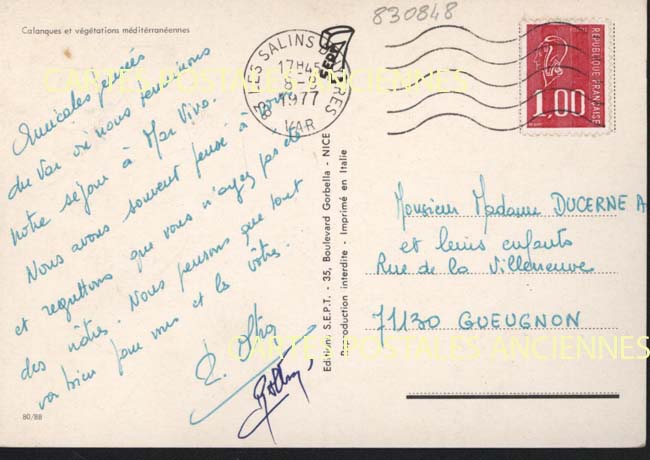 Calanques et végétations méditérranéennes
830848
83 LES SALINS
17H45
8-
1977
VAR
REPUBLIQUE FRANÇAISE
1,00
Amicales pensées
du Var où nous terminons
notre séjour à Mar Vivo.
Nous avons souvent pensé à vous
et regrettons que vous n'ayez pas été
des nôtres. Nous pensons que tout
va bien pour vous et les vôtres.
Editions S.E.P.T. - 35, Boulevard Gorbella - NICE
Reproduction interdite - Imprimé en Italie
Monsieur Madame DUCERNE
et leurs enfants
Rue de la Villeneuve
71130 GUEUGNON
80/88
CARTES POSTALES ANCIENNES
CARTES POSTALES ANCIENNES